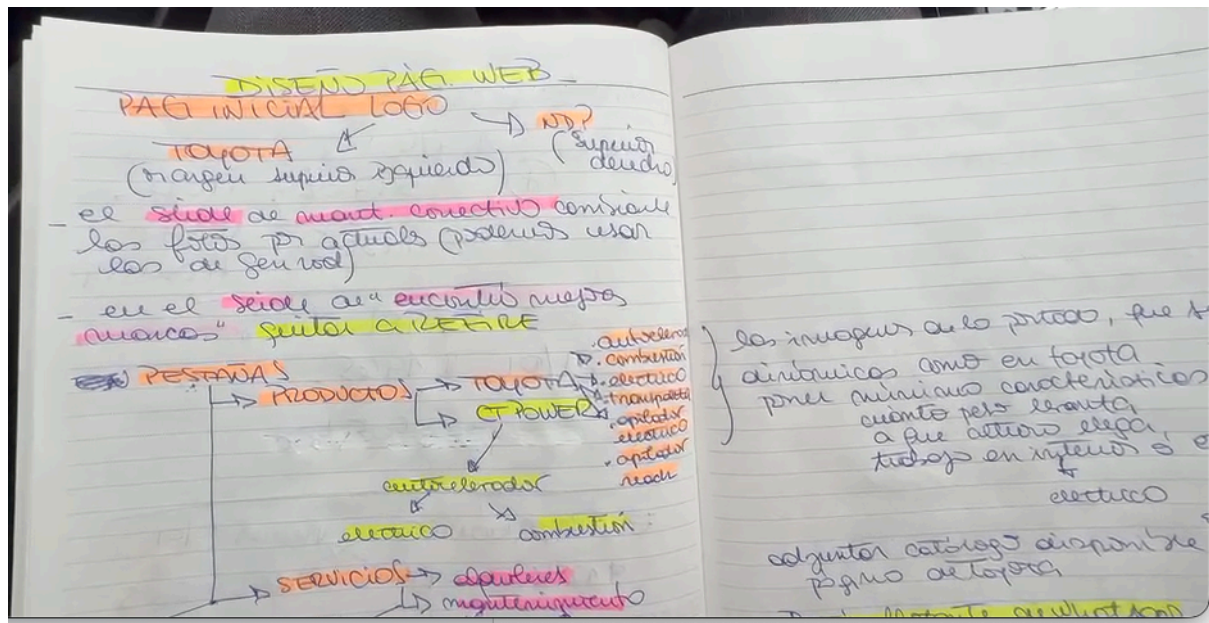 DISEÑO PÁG. WEB
PAG INICIAL LOGO
TOYOTA
(margen superior izquierdo)
ND?
(superior
derecho)
- el slide de mant. correctivo
las fotos por actuales (podemos usar
las de
- en el slide de "encontrás mejores
marcas" quitar a ZEFIRE
PESTAÑAS
PRODUCTOS → TOYOTA
CT POWER
. autoelevad
. combustión
. electrico
. transpaleta
. apilador
electrico
. apilador
reach
autoelevador
electrico
combustión
SERVICIOS → alquileres
mantenimiento
las imagenes de la portada, que s
dinámicas como en toyota
poner mínimo características
cuánto peso levanta
a que altura llega,
trabajo en interior o e
electrico
adjuntar catálogo disponible
página de toyota
flotante de Whatsapp